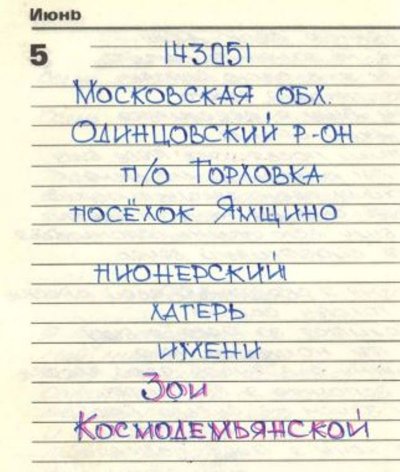 Июнь
5
143051
Московская обл.
Одинцовский р-он
п/о Горловка
посёлок Ямщино
пионерский
лагерь
имени
Зои
Космодемьянской